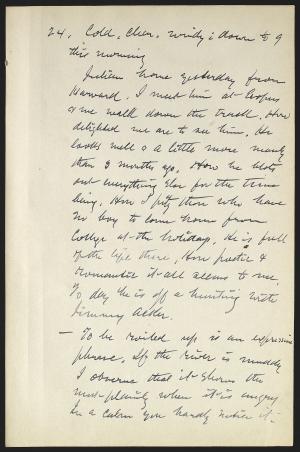 24. Cold, clear, windy; down to 9
this morning
Julian home yesterday from
Harvard. I meet him at
& we walk down the track. How
delighted we are to see him. He
looks well & a little more manly
than 3 months ago. How he blots
out everything else for the time
being. How I pity those who have
no boy to come home from
College at the holidays. He is full
of the life there. How poetic &
romantic it all seems to me.
To day he is off a hunting with
Jimmy Acker.
— To be roiled up is an expressive
phrase. If the river is muddy
I observe that it shows the
most plainly when it is angry.
In a calm you hardly notice it.